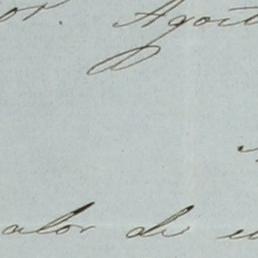 or. Agost
alor de